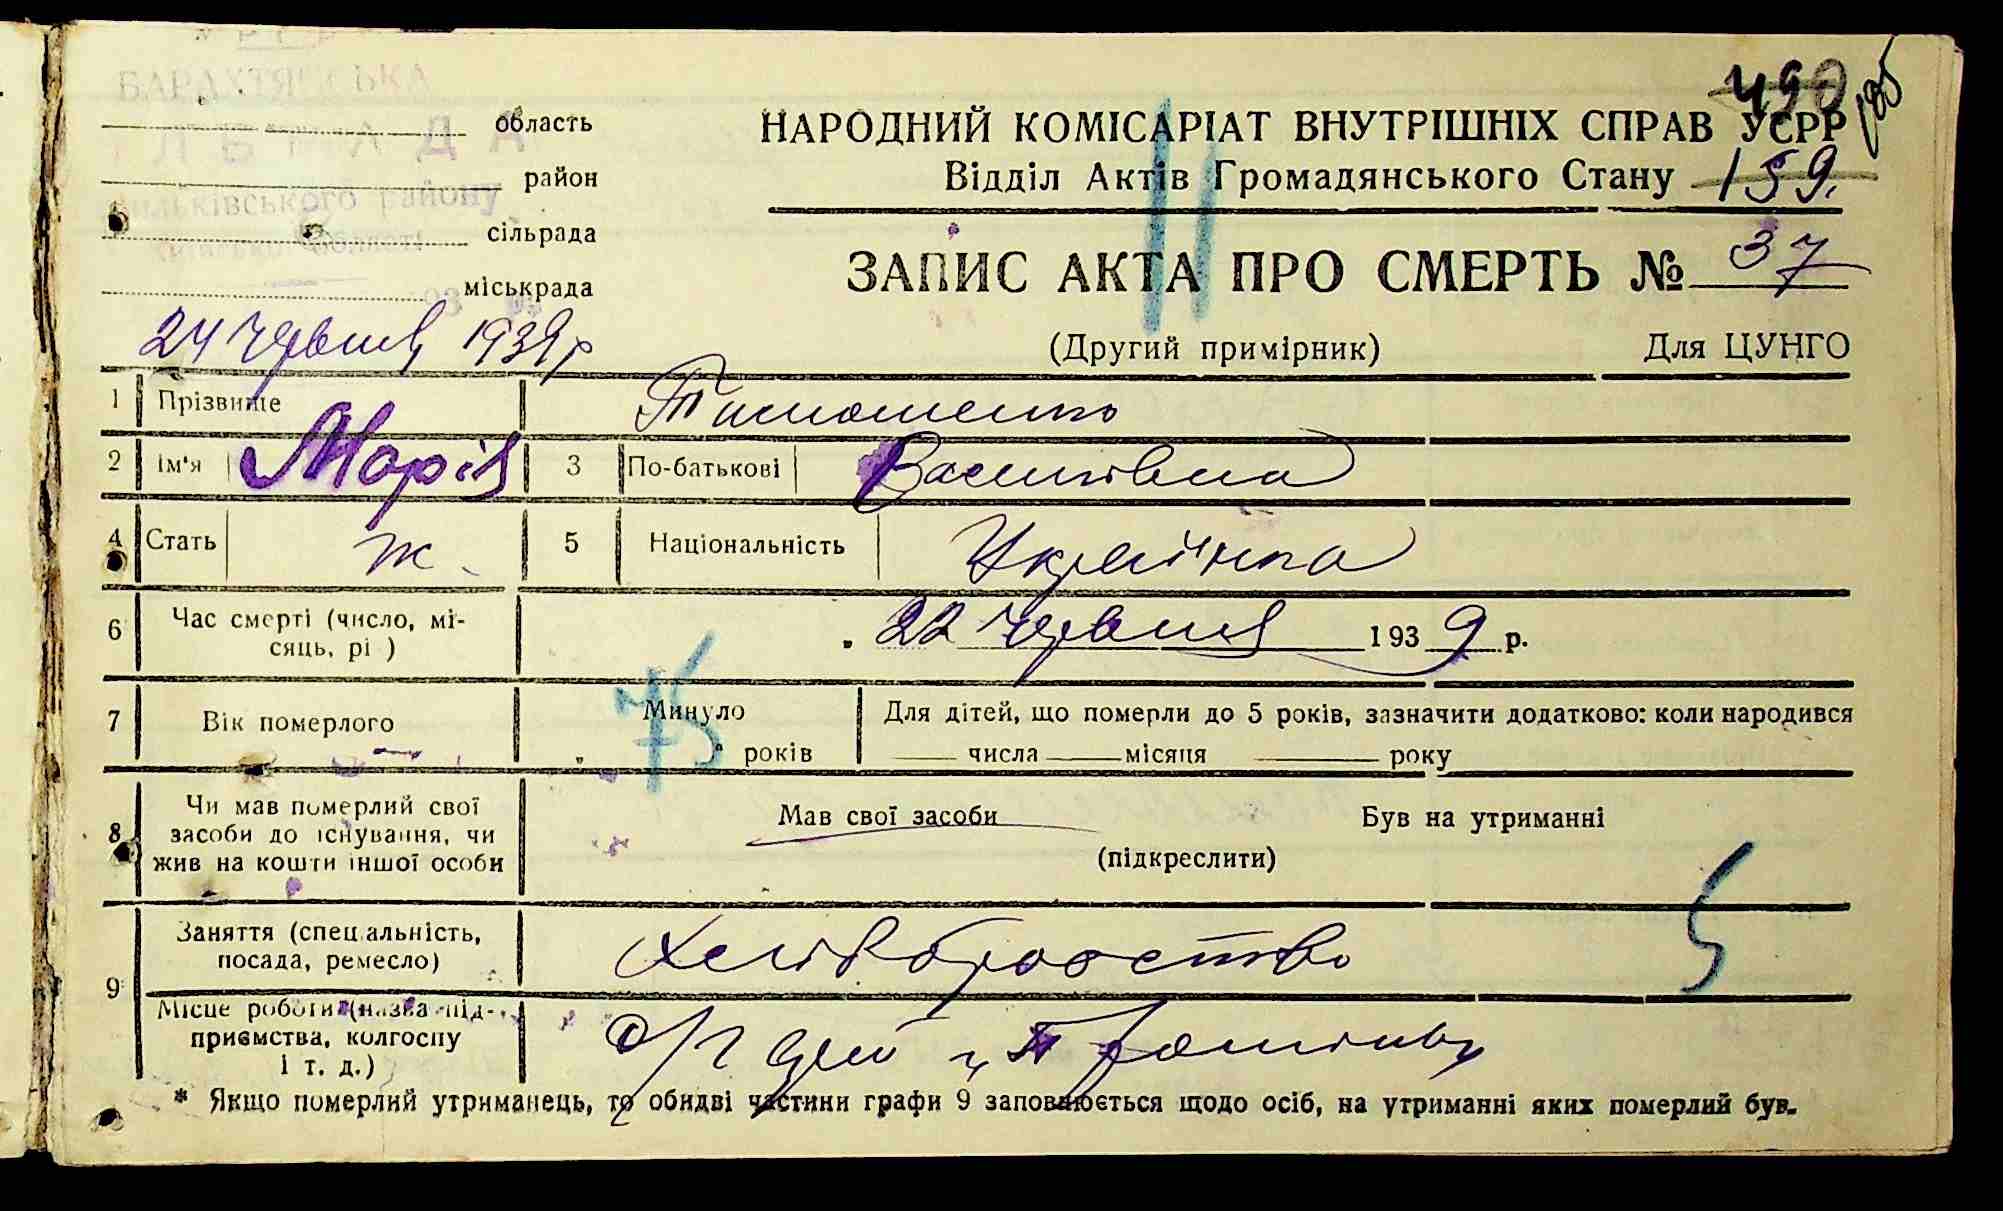 БАРАХТЯНСЬКА
область
район
району
сільрада
міськрада
490
185
НАРОДНИЙ КОМІСАРІАТ ВНУТРІШНІХ СПРАВ УСРР
Відділ Актів Громадянського Стану 159.
ЗАПИС АКТА ПРО СМЕРТЬ № 37
(Другий примірник) Для ЦУНГО
24 червня 1939 р
1 Прізвище Тимошенко
2 Ім'я Марія 3 По-батькові Василівна
4 Стать Ж. 5 Національність Українка
6 Час смерті (число, мі-
сяць, рі ) 22 червня 1939 р.
7 Вік померлого Минуло 75 років
Для дітей, що померли до 5 років, зазначити додатково: коли народився
числа місяця року
8 Чи мав померлий свої
засоби до існування, чи
жив на кошти іншої особи
Мав свої засоби Був на утриманні
(підкреслити)
9 Заняття (спеціальність,
посада, ремесло) Хліборобство
Місце роботи (назва під-
приємства, колгоспу
і т. д.)
* Якщо померлий утриманець, то обидві частини графи 9 заповнюється щодо осіб, на утриманні яких померлий був.